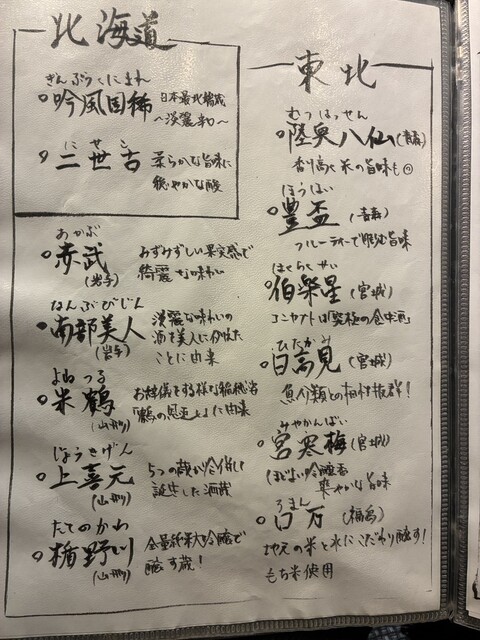 北海道
ぎんぷうくにまれ
吟風国稀
日本最北端蔵
〜淡麗辛口〜
にせこ
二世古
柔らかな旨味に
穏やかな酸
東北
むつはっせん
陸奥八仙(青森)
香り高く米の旨味も◎
ほうはい
豊盃(青森)
フルーティーで膨む旨味
はくらくせい
伯楽星(宮城)
コンセプトは「究極の食中酒」
ひたかみ
日高見(宮城)
魚介類との相性抜群!
みやかんばい
宮寒梅(宮城)
ほどよい吟醸香
爽やかな旨味
ろまん
ロ万(福島)
地元の米と水にこだわり醸す!
もち米使用
あかぶ
赤武
(岩手)
みずみずしい果実感で
綺麗な味わい
なんぶびじん
南部美人
(岩手)
淡麗な味わいの
酒を美人に例えた
ことに由来
よねつる
米鶴
(山形)
お辞儀をする様な稲穂
「鶴の恩返し」に由来
じょうきげん
上喜元
(山形)
5つの蔵が合併し
誕生した酒蔵
たてのかわ
楯野川
(山形)
全量純米大吟醸で
醸す蔵!